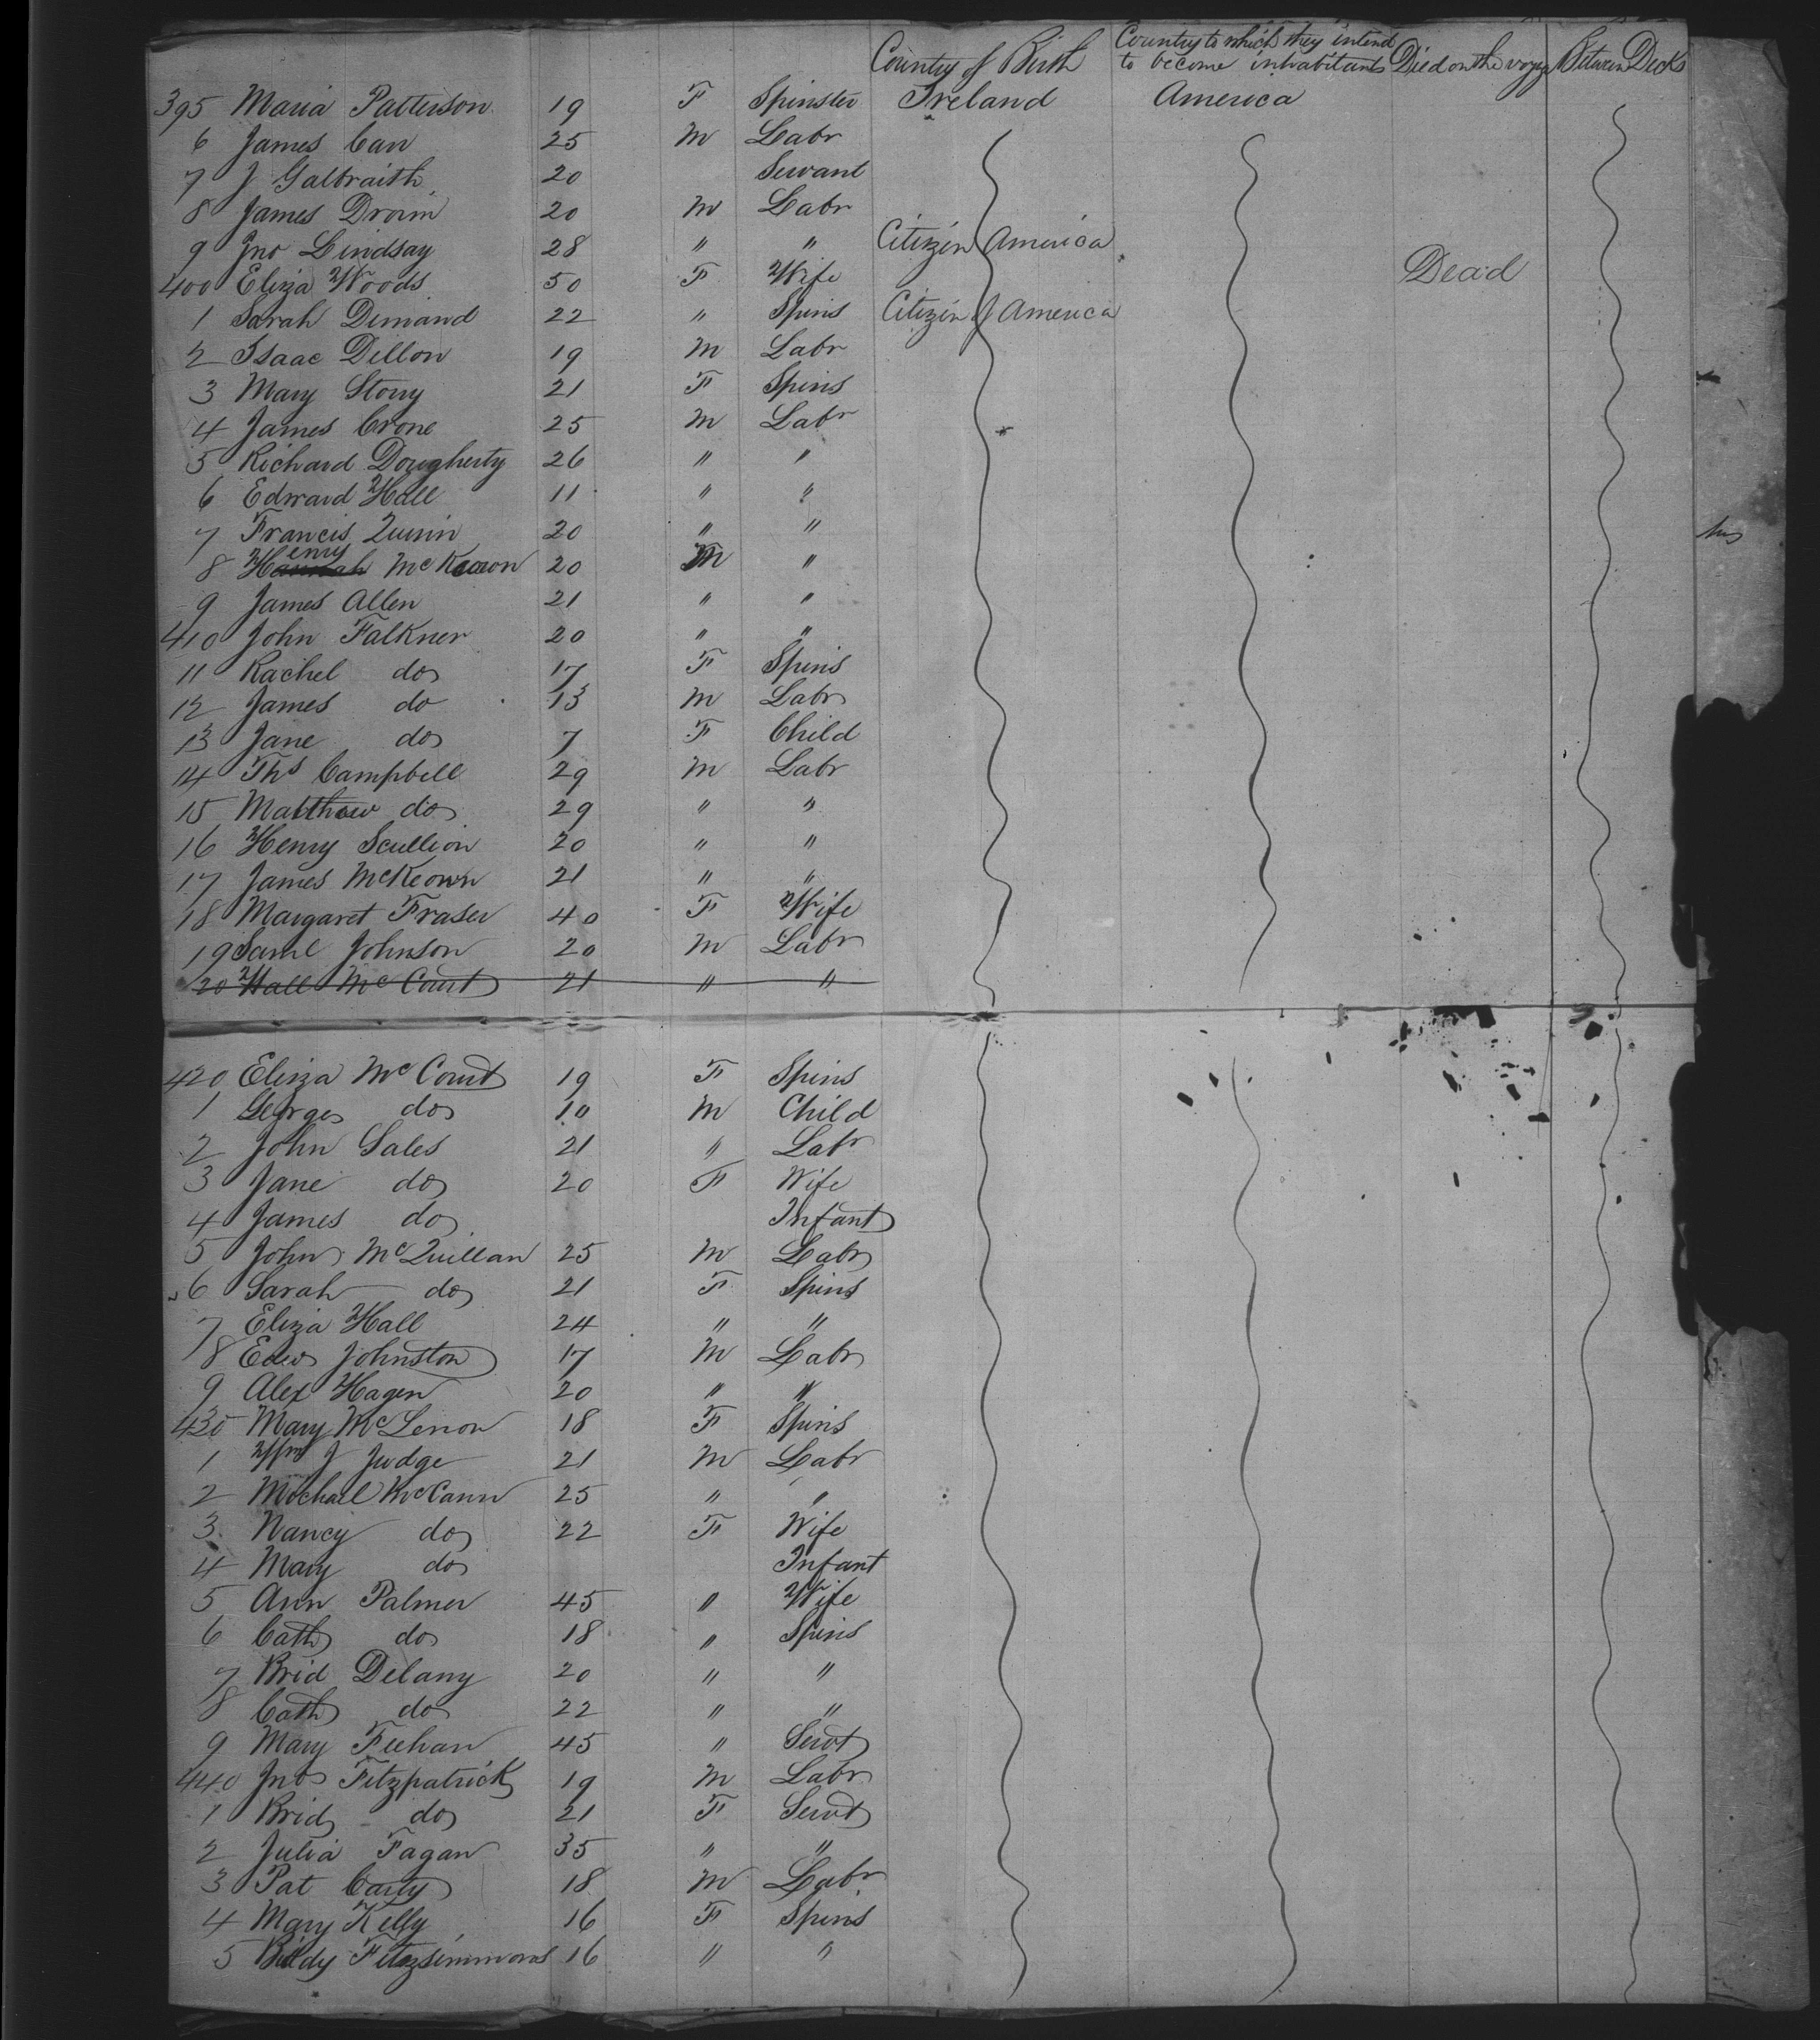 Country of Birth Country to which they intend to become inhabitants Died on the voyage Between Decks
395 Maria Patterson 19 F Spinster Ireland America
6 James Carr 25 M Labr
7 J Galbraith 20 Servant
8 James Drowin 20 M Labr
9 Jno Lindsay 28 " " Citizen America
400 Eliza Woods 50 F Wife Dead
1 Sarah Dimand 22 " Spins Citizen of America
2 Isaac Dillon 19 M Labr
3 Mary Story 21 F Spins
4 James Crone 25 M Labr
5 Richard Dougherty 26 " "
6 Edward Hall 11 " "
7 Francis Quinn 20 " "
8 Henry McKeown 20 M "
9 James Allen 21 " "
410 John Falkner 20 " "
11 Rachel do 17 F Spins
12 James do 13 M Labr
13 Jane do 7 F Child
14 Ths Campbell 29 M Labr
15 Matthew do 29 " "
16 Henry Scullion 20 " "
17 James McKeown 21 " "
18 Margaret Fraser 40 F Wife
19 Saml Johnson 20 M Labr
20 Hall McCourt 21 " "
420 Eliza McCourt 19 F Spins
1 George do 10 M Child
2 John Sales 21 " Labr
3 Jane do 20 F Wife
4 James do Infant
5 John McQuillan 25 M Labr
6 Sarah do 21 F Spins
7 Eliza Hall 24 " "
8 Edwd Johnston 17 M Labr
9 Alex Hagen 20 " "
430 Mary McLenon 18 F Spins
1 Wm J Judge 21 M Labr
2 Michael McCann 25 " "
3 Nancy do 22 F Wife
4 Mary do Infant
5 Ann Palmer 45 " Wife
6 Cath do 18 " Spins
7 Brid Delany 20 " "
8 Cath do 22 " "
9 Mary Feehan 45 " Servt
440 Jno Fitzpatrick 19 M Labr
1 Brid do 21 F Servt
2 Julia Fagan 35 " "
3 Pat Carty 18 M Labr
4 Mary Kelly 16 F Spins
5 Biddy Fitzsimmons 16 " "